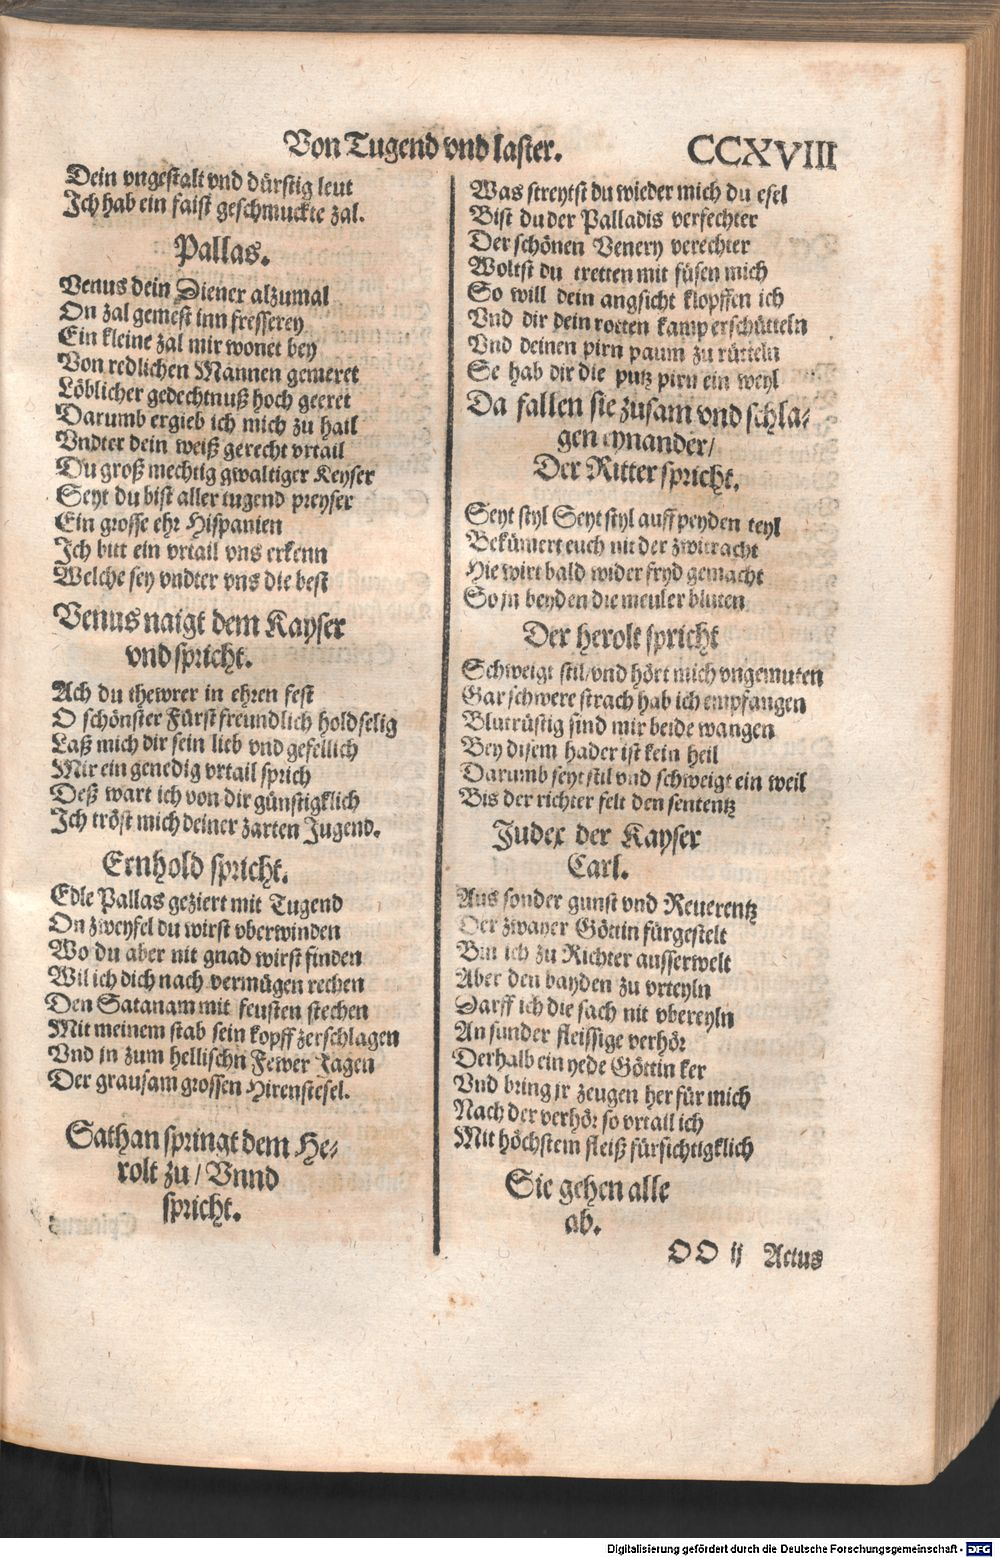 Von Tugend vnd laster. CCXVIII
Dein vngestalt vnd dürstig leut
Ich hab ein faist geschmuckte zal.
Pallas.
Venus dein Diener alzumal
On zal gemest inn fresserey
Ein kleine zal mir wonet bey
Von redlichen Mannen gemeret
Löblicher gedechtnuß hoch geeret
Darumb ergieb ich mich zu hail
Vndter dein weiß gerecht vrtail
Du groß mechtig gwaltiger Keyser
Seyt du bist aller tugend preyser
Ein grosse ehr Hispanien
Ich bitt ein vrtail vns erkenn
Welche sey vndter vns die best
Venus naigt dem Kayser
vnd spricht.
Ach du thewrer in ehren fest
O schönster Fürst freundlich holdselig
Laß mich dir sein lieb vnd gefellich
Mir ein genedig vrtail sprich
Deß wart ich von dir günstigklich
Ich tröst mich deiner zarten Jugend.
Ernhold spricht.
Edle Pallas geziert mit Tugend
On zweyfel du wirst vberwinden
Wo du aber nit gnad wirst finden
Wil ich dich nach vermügen rechen
Den Satanam mit feusten stechen
Mit meinem stab sein kopff zerschlagen
Vnd in zum hellischn Fewer Jagen
Der grausam grossen Hirenstesel.
Sathan springt dem He⸗
rolt zu / Vnnd
spricht.
Was streytst du wieder mich du esel
Bist du der Palladis verfechter
Der schönen Venery verechter
Woltst du tretten mit füsen mich
So will dein angsicht klopffen ich
Vnd dir dein rotten kamp erschütteln
Vnd deinen pirn paum zu rütteln
Se hab dir die putz pirn ein weyl
Da fallen sie zusam vnd schla⸗
gen eynander /
Der Ritter spricht.
Seyt styl Seyt styl auff peyden teyl
Bekümert euch nit der zwitracht
Hie wirt bald wider fryd gemacht
So jn beyden die meuler bluten
Der herolt spricht
Schweigt stil / vnd hört mich vngemuten
Gar schwere strach hab ich empfangen
Blutrüstig sind mir beide wangen
Bey disem hader ist kein heil
Darumb seyt stil vnd schweigt ein weil
Bis der richter felt den sententz
Judex der Kayser
Carl.
Aus sonder gunst vnd Reuerentz
Der zwayer Göttin fürgestelt
Bin ich zu Richter ausserwelt
Aber den bayden zu vrteyln
Darff ich die sach nit vbereyln
An sunder fleissige verhör
Derhalb ein yede Göttin ker
Vnd bring jr zeugen her für mich
Nach der verhör so vrtail ich
Mit höchstem fleiß fürsichtigklich
Sie gehen alle
ab.
OO ij Actus
Digitalisierung gefördert durch die Deutsche Forschungsgemeinschaft - DFG